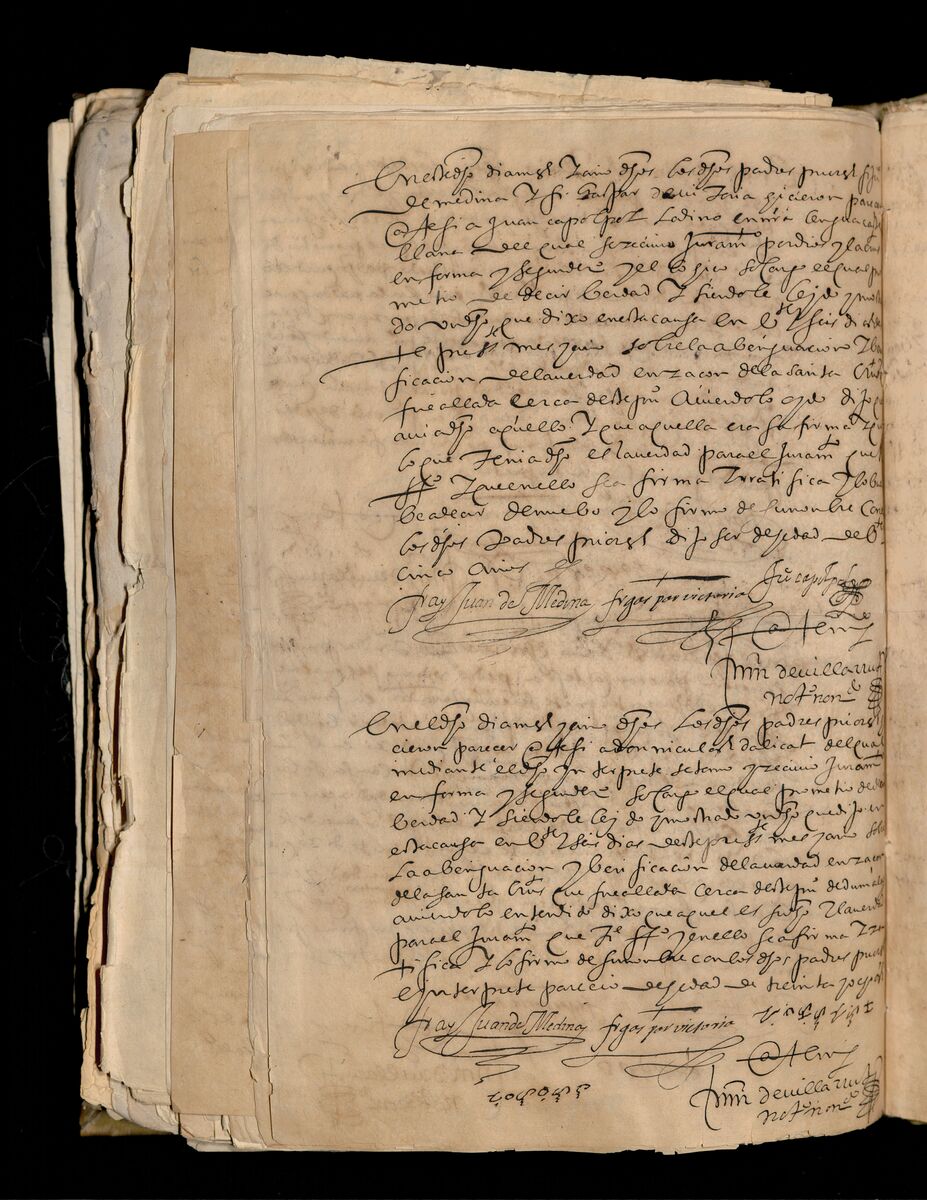 En este dho dia mes y año dhos los dhos padres prior fr Ju
de medina y fr gaspar de vitoria hicieron parecer
ante si a Juan capolpol Ladino en nra lengua caste
llana del qual se recivio Juramto por dios y la cruz
en forma y segun dro so cargo el qual pro
metio de decir berdad y siendole leydo y mostra
do un dho que dixo en esta causa en bte y seis dias
presste mes y año sobre la aberiguacion y beri
ficacion de la verdad en racon de la santa Cruz
fue allada cerca deste pu Aviendolo oydo dijo q
avia dho aquello y que aquella era su firma y q
lo que tenia dho es la verdad para el Juramto que
fho y que en ello se afirma y rratifica y lo bu
be a decir de nuebo y lo firmo de su nombre con
los dhos Padres prior dijo ser de hedad de bte
cinco años
Fray Juan de Medina fr gaspar victoria Ju capolpol
ante mi
mrn de villarru
noto non
En el dho dia mes y año dhos Los dhos padres prior
cieron parecer ante si a don nicular dalicat del qual
mediante el dho ynterprete se tomo y recivio Juramto
en forma y segun dro so cargo el qual prometio de
berdad y siendole leydo y mostrado un dho que dijo en
esta causa en bte y seis dias deste pressте mes y año sob
La aberiguacion y berificacion de la verdad en racon
de la santa Cruz que fue allada cerca deste pu de
aviendolo entendido dixo que aquel es su dho y la verdad
para el Juramto que ti fho y en ello se afirma y rra
tifica y lo firmo de su nombre con los dhos padres prior
el ynterprete parecio de hedad de treinta
Fray Juan de Medina fr gaspar victoria
ante mi
mrn de villarru
noto non